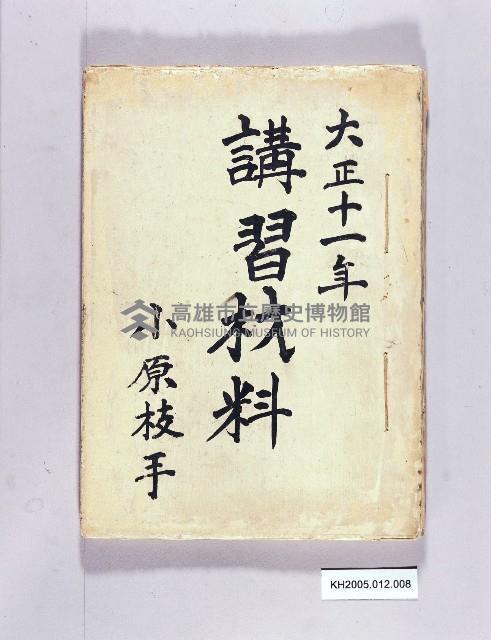 大正十一年
講習材料
小原枝手
高雄市立歷史博物館
KAOHSIUNG MUSEUM OF HISTORY
KH2005.012.008